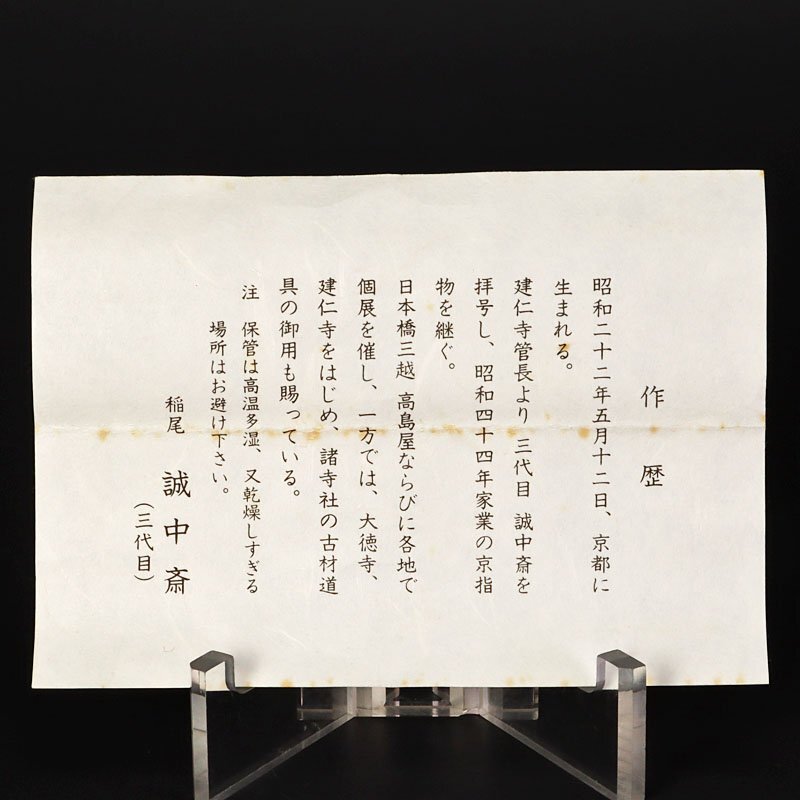 作歴
昭和二十二年五月十二日、京都に
生まれる。
建仁寺管長より 三代目 誠中斎を
拝号し、昭和四十四年家業の京指
物を継ぐ。
日本橋三越 高島屋ならびに各地で
個展を催し、一方では、大徳寺、
建仁寺をはじめ、諸寺社の古材道
具の御用も賜っている。
注 保管は高温多湿、又乾燥しすぎる
場所はお避け下さい。
稲尾 誠中斎
(三代目)